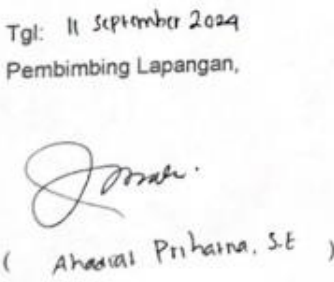 Tgl: 11 September 2024
Pembimbing Lapangan,
( Prihatna, S.E )